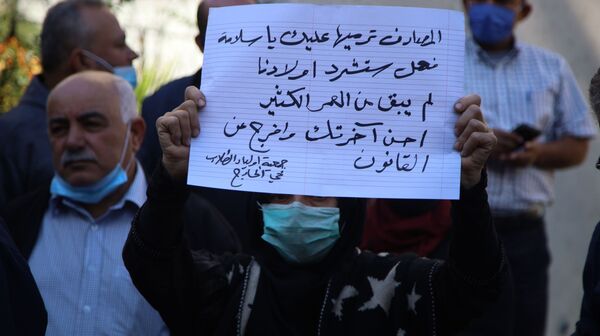 المصارف ترميها عليك يا سلامة
نعل ستشرد اولادنا
لم يبق من العمر الكثير
احسن آخرتك وافرج عن
القانون
جمعية اولياء الطلاب
في الخارج